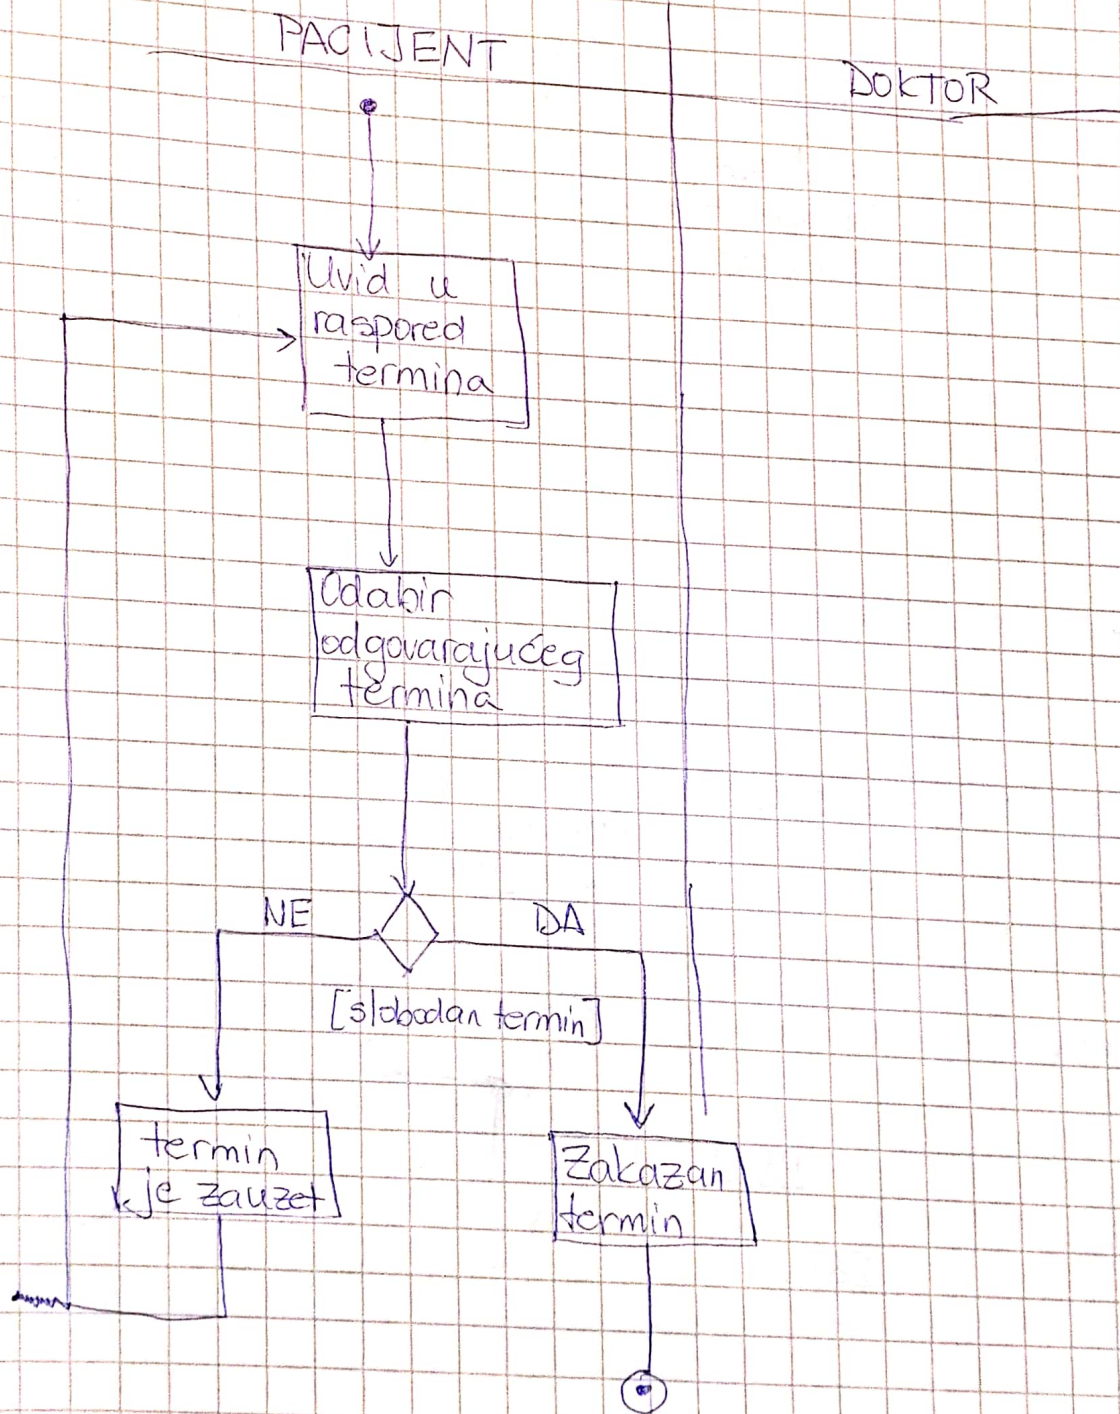 PACIJENT
DOKTOR
Uvid u
raspored
termina
Odabir
odgovarajućeg
termina
NE
DA
[slobodan termin]
termin
je zauzet
Zakazan
termin